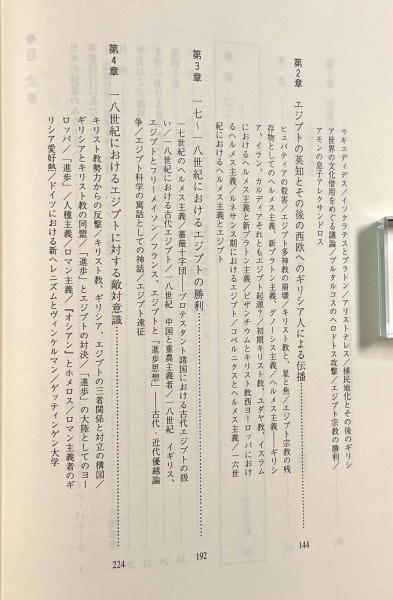 ゥキュディデス/イソクラテスとプラトン/アリストテレス/植民地化とその後のギリシ
ア世界の文化借用をめぐる議論/プルタルコスのヘロドトス攻撃/エジプト宗教の勝利/
アモンの息子アレクサンドロス
第2章 エジプトの英知とその後の西欧へのギリシア人による伝播 144
ヒュパティアの殺害/エジプト多神教の崩壊/キリスト教と、星と魚/エジプト宗教の残
存物としてのヘルメス主義、新プラトン主義、グノーシス主義/ヘルメス主義――ギリシ
ア、イラン、カルディアそれともエジプト起源?/初期キリスト教、ユダヤ教、イスラム
におけるヘルメス主義と新プラトン主義/ビザンチウムとキリスト教西ヨーロッパにおけ
るヘルメス主義/ルネサンス期におけるエジプト/コペルニクスとヘルメス主義/一六世
紀におけるヘルメス主義とエジプト
第3章 一七〜一八世紀におけるエジプトの勝利 192
一七世紀のヘルメス主義/薔薇十字団――プロテスタント諸国における古代エジプトの扱
い/一八世紀における古代エジプト/一八世紀 中国と重農主義者/一八世紀 イギリス、
エジプトとフリーメイソン/フランス、エジプトと「進歩思想」――古代・近代優越論
争/エジプト科学の寓話としての神話/エジプト遠征
第4章 一八世紀におけるエジプトに対する敵対意識 224
キリスト教勢力からの反撃/キリスト教、ギリシア、エジプトの三者関係と対立の構図/
ギリシアとキリスト教の同盟/「進歩」とエジプトの対決/「進歩」の大陸としてのヨー
ロッパ/「進歩」/人種主義/ロマン主義/『オシアン』とホメロス/ロマン主義者のギ
リシア愛好熱/ドイツにおける新ヘレニズムとヴィンケルマン/ゲッティンゲン大学